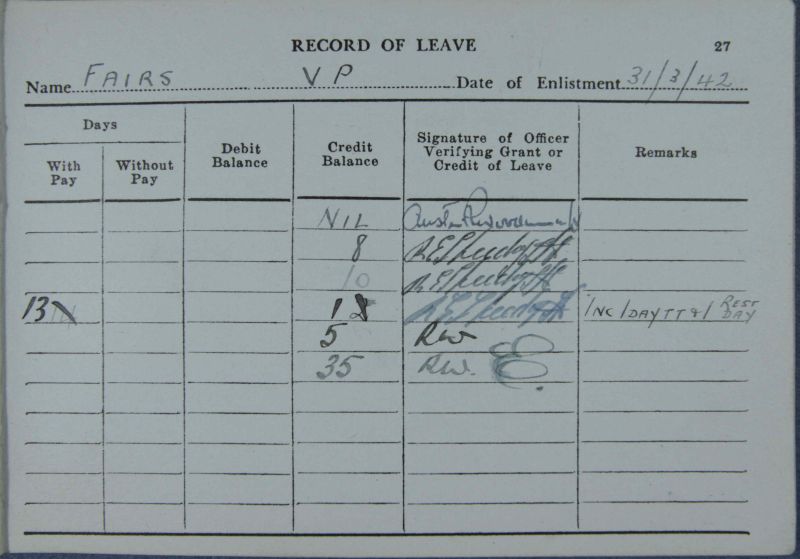 RECORD OF LEAVE 27
Name FAIRS V P Date of Enlistment 31/3/42
Days
With Pay
Without Pay
Debit Balance
Credit Balance
Signature of Officer Verifying Grant or Credit of Leave
Remarks
NIL
8
10
13 18 INC 1 DAY TT & 1 REST DAY
5 RW
35 RW.